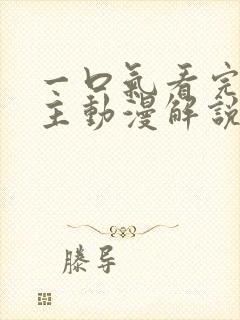 一口氣看完
主動漫解說
滕导